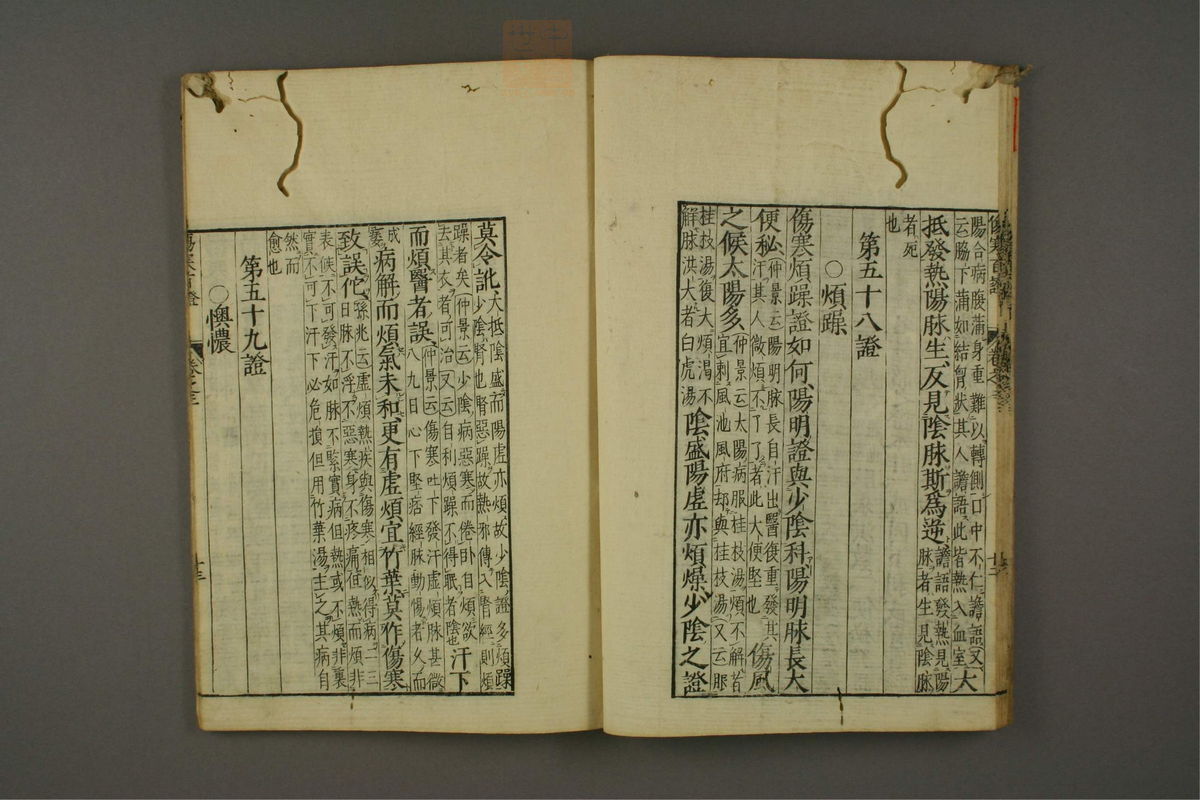 陽合病腹滿身重難以轉側口中不仁譫語又
云脇下滿如結胷狀其人譫語此皆熱入血室大
抵發熱陽脉生反見陰脉斯爲逆譫語發熱見陽
脉者生見陰脉
者死
也
第五十八證
○煩躁
傷寒煩躁證如何陽明證與少陰科陽明脉長大
便秘仲景云陽明脉長自汗出醫復重發其
汗其人微煩不了了者此大便堅也傷風
之候太陽多仲景云太陽病服桂枝湯煩不解者
宜刺風池風府却與桂枝湯又云服
桂枝湯復大煩渴不
解脉洪大者白虎湯陰盛陽虚亦煩燥少陰之證
莫令訛大抵陰盛而陽虚亦煩故少陰證多煩躁
少陰腎也腎惡躁故熱邪傳入腎經則煩
躁者矣仲景云少陰病惡寒而倦卧目煩欲
去其衣者可治又云自利煩躁不得眠者陰也汗下
而煩醫者誤仲景云傷寒吐下發汗虚煩脉甚微
八九日心下堅痞經脉動惕者久而
成
痿病解而煩氣未和更有虚煩宜竹葉莫作傷寒
致誤佗孫兆云虚煩熱疾與傷寒相似得病二三
日脉不浮不惡寒身不疼痛但熱而煩非
表候不可發汗如脉不緊實病但熱或不煩非裏
實不可下汗下必危損但用竹葉湯主之其病自
然而
愈也
第五十九證
○懊憹
傷寒百證
卷之三
廿三